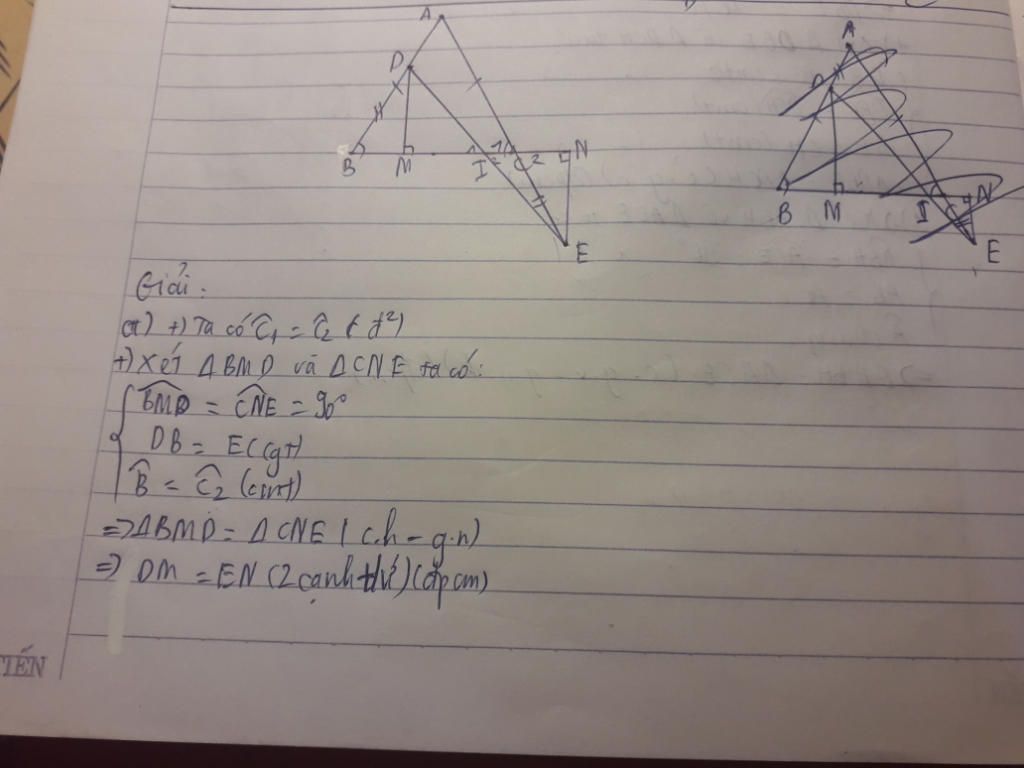 A
D
B
M
I
1
C
2
N
E
A
D
B
M
I
C
N
E
Giải:
a) +) Ta có Ĉ₁ = Ĉ₂ (đ²)
+) Xét ΔBMD và ΔCNE ta có:
BMD = CNE = 90°
DB = EC(gt)
B̂ = Ĉ₂ (cmt)
=> ΔBMD = ΔCNE (c.h - g.n)
=> DM = EN (2 cạnh t/ứ) (đpcm)
TIẾN